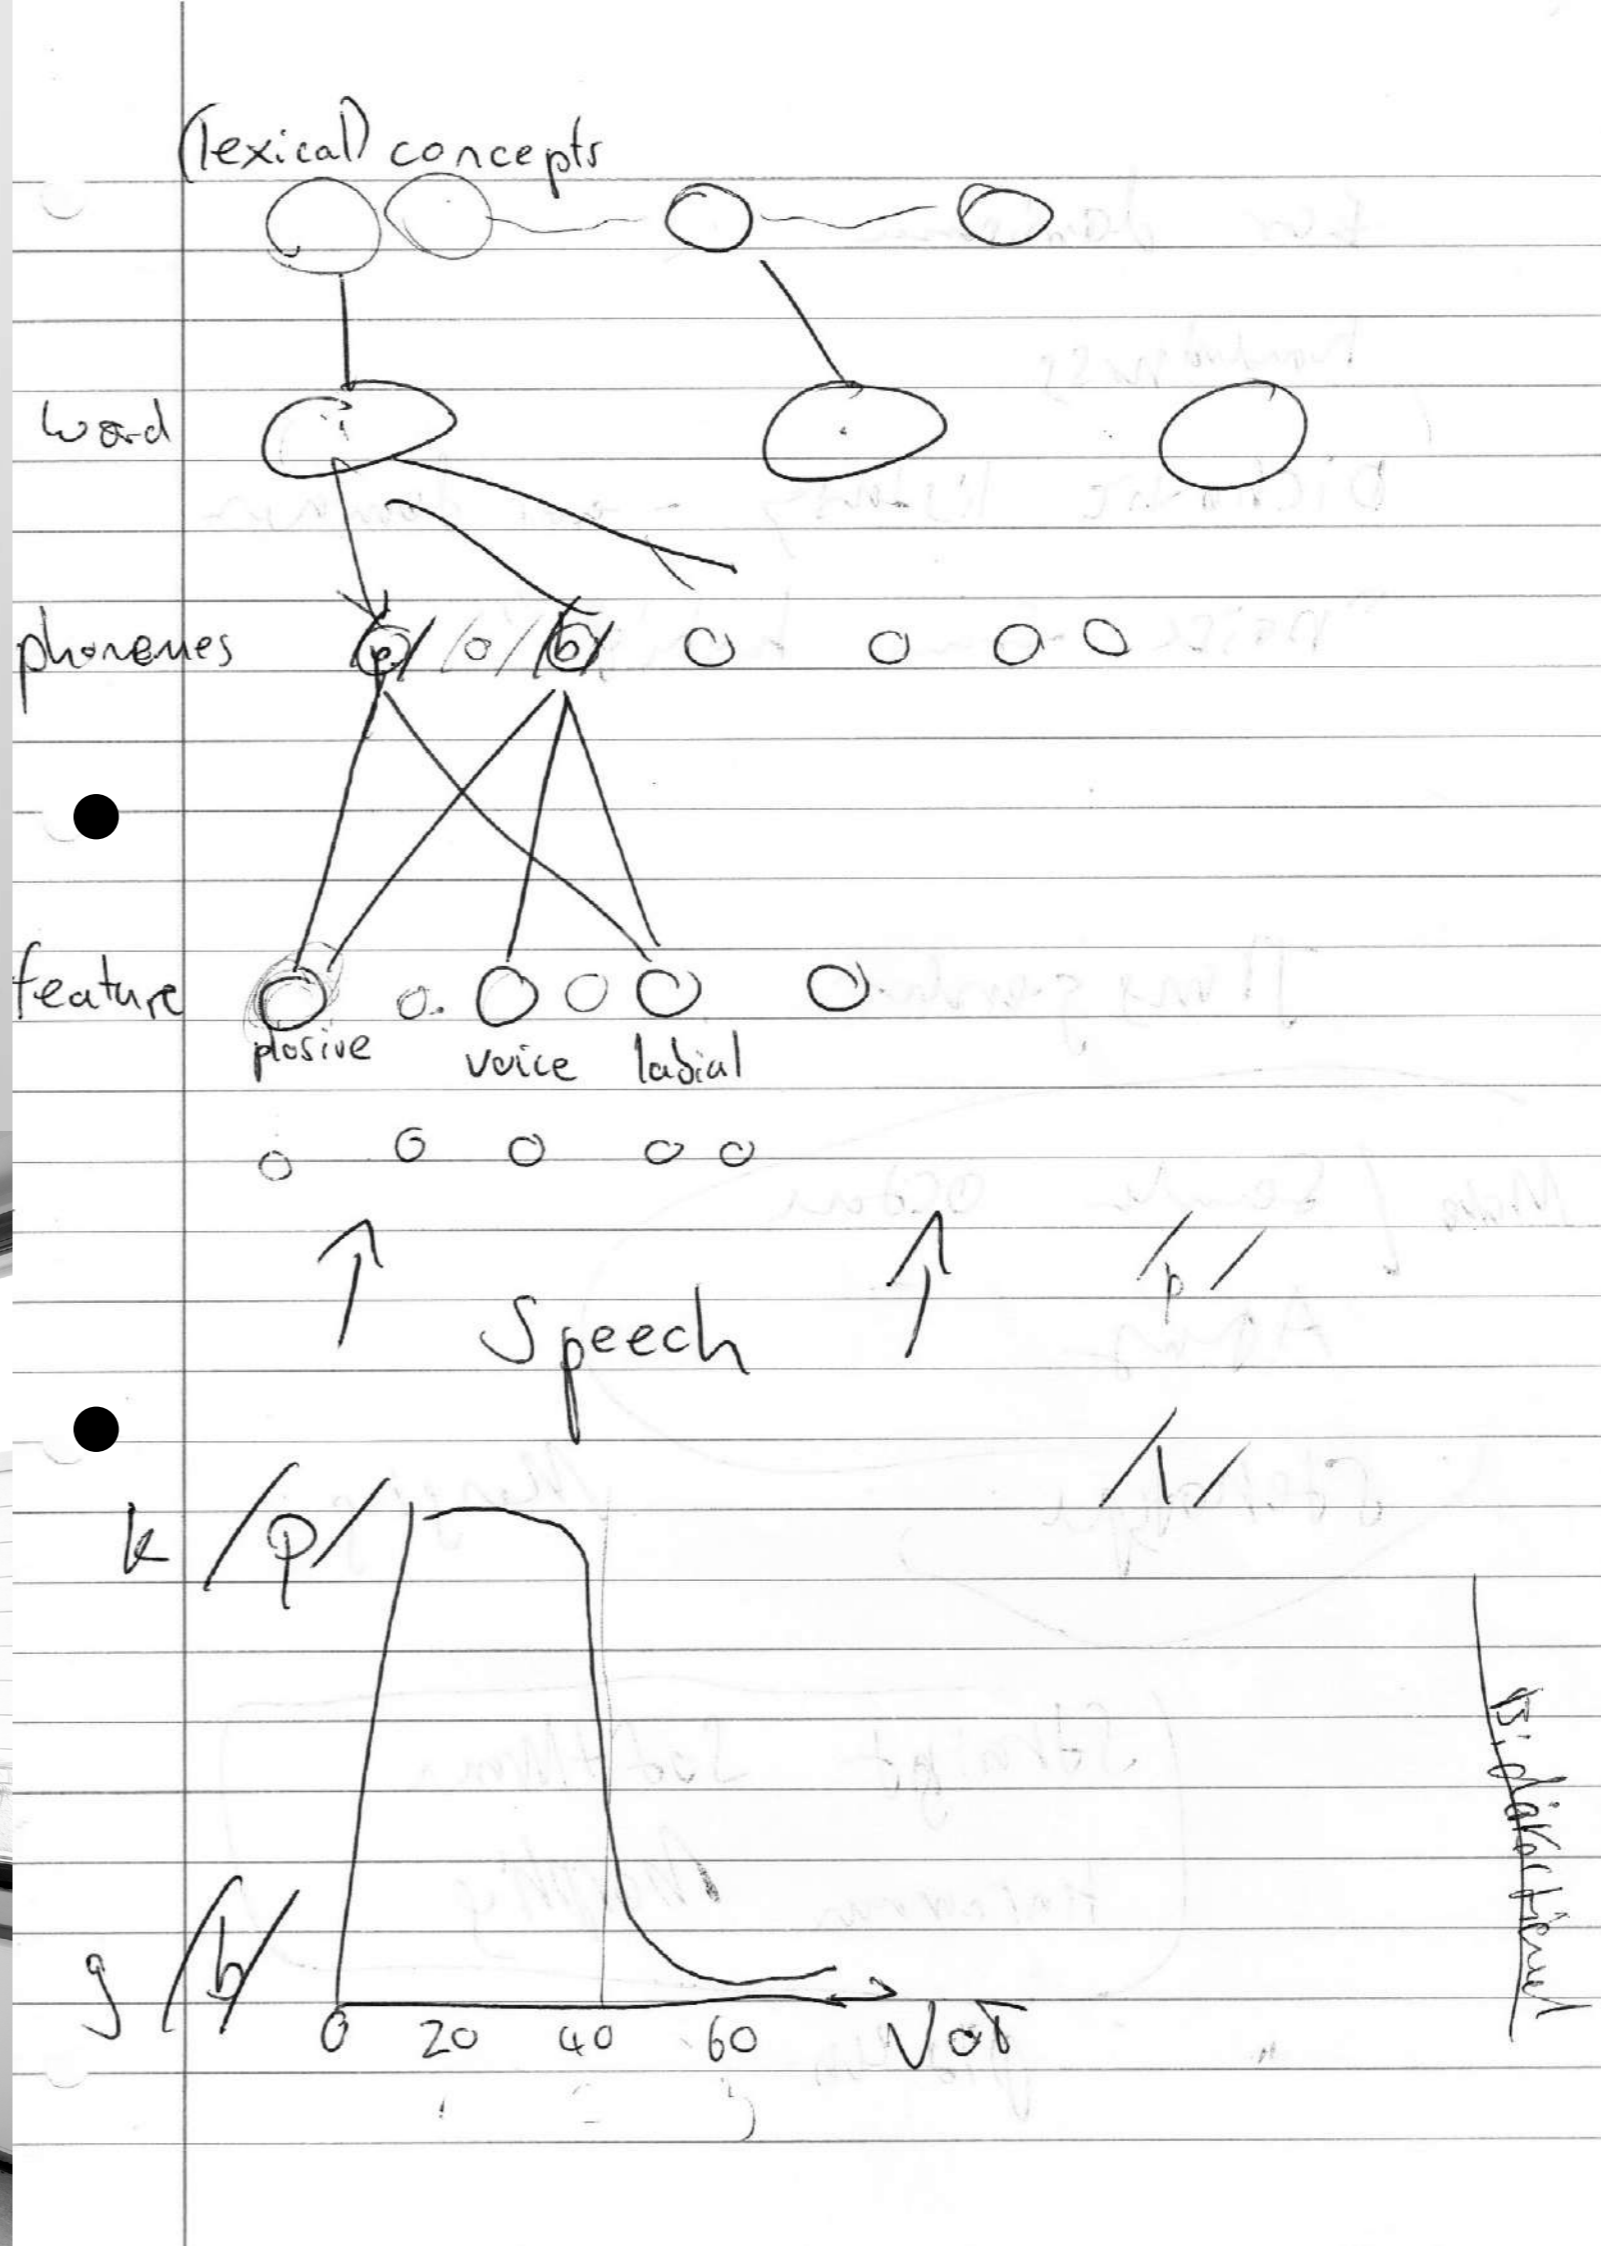 (lexical) concepts
word
phonemes /p/ /o/ /b/
feature
plosive voice labial
/p/
Speech
/\/
k /p/
g /b/
0 20 40 60 VOT